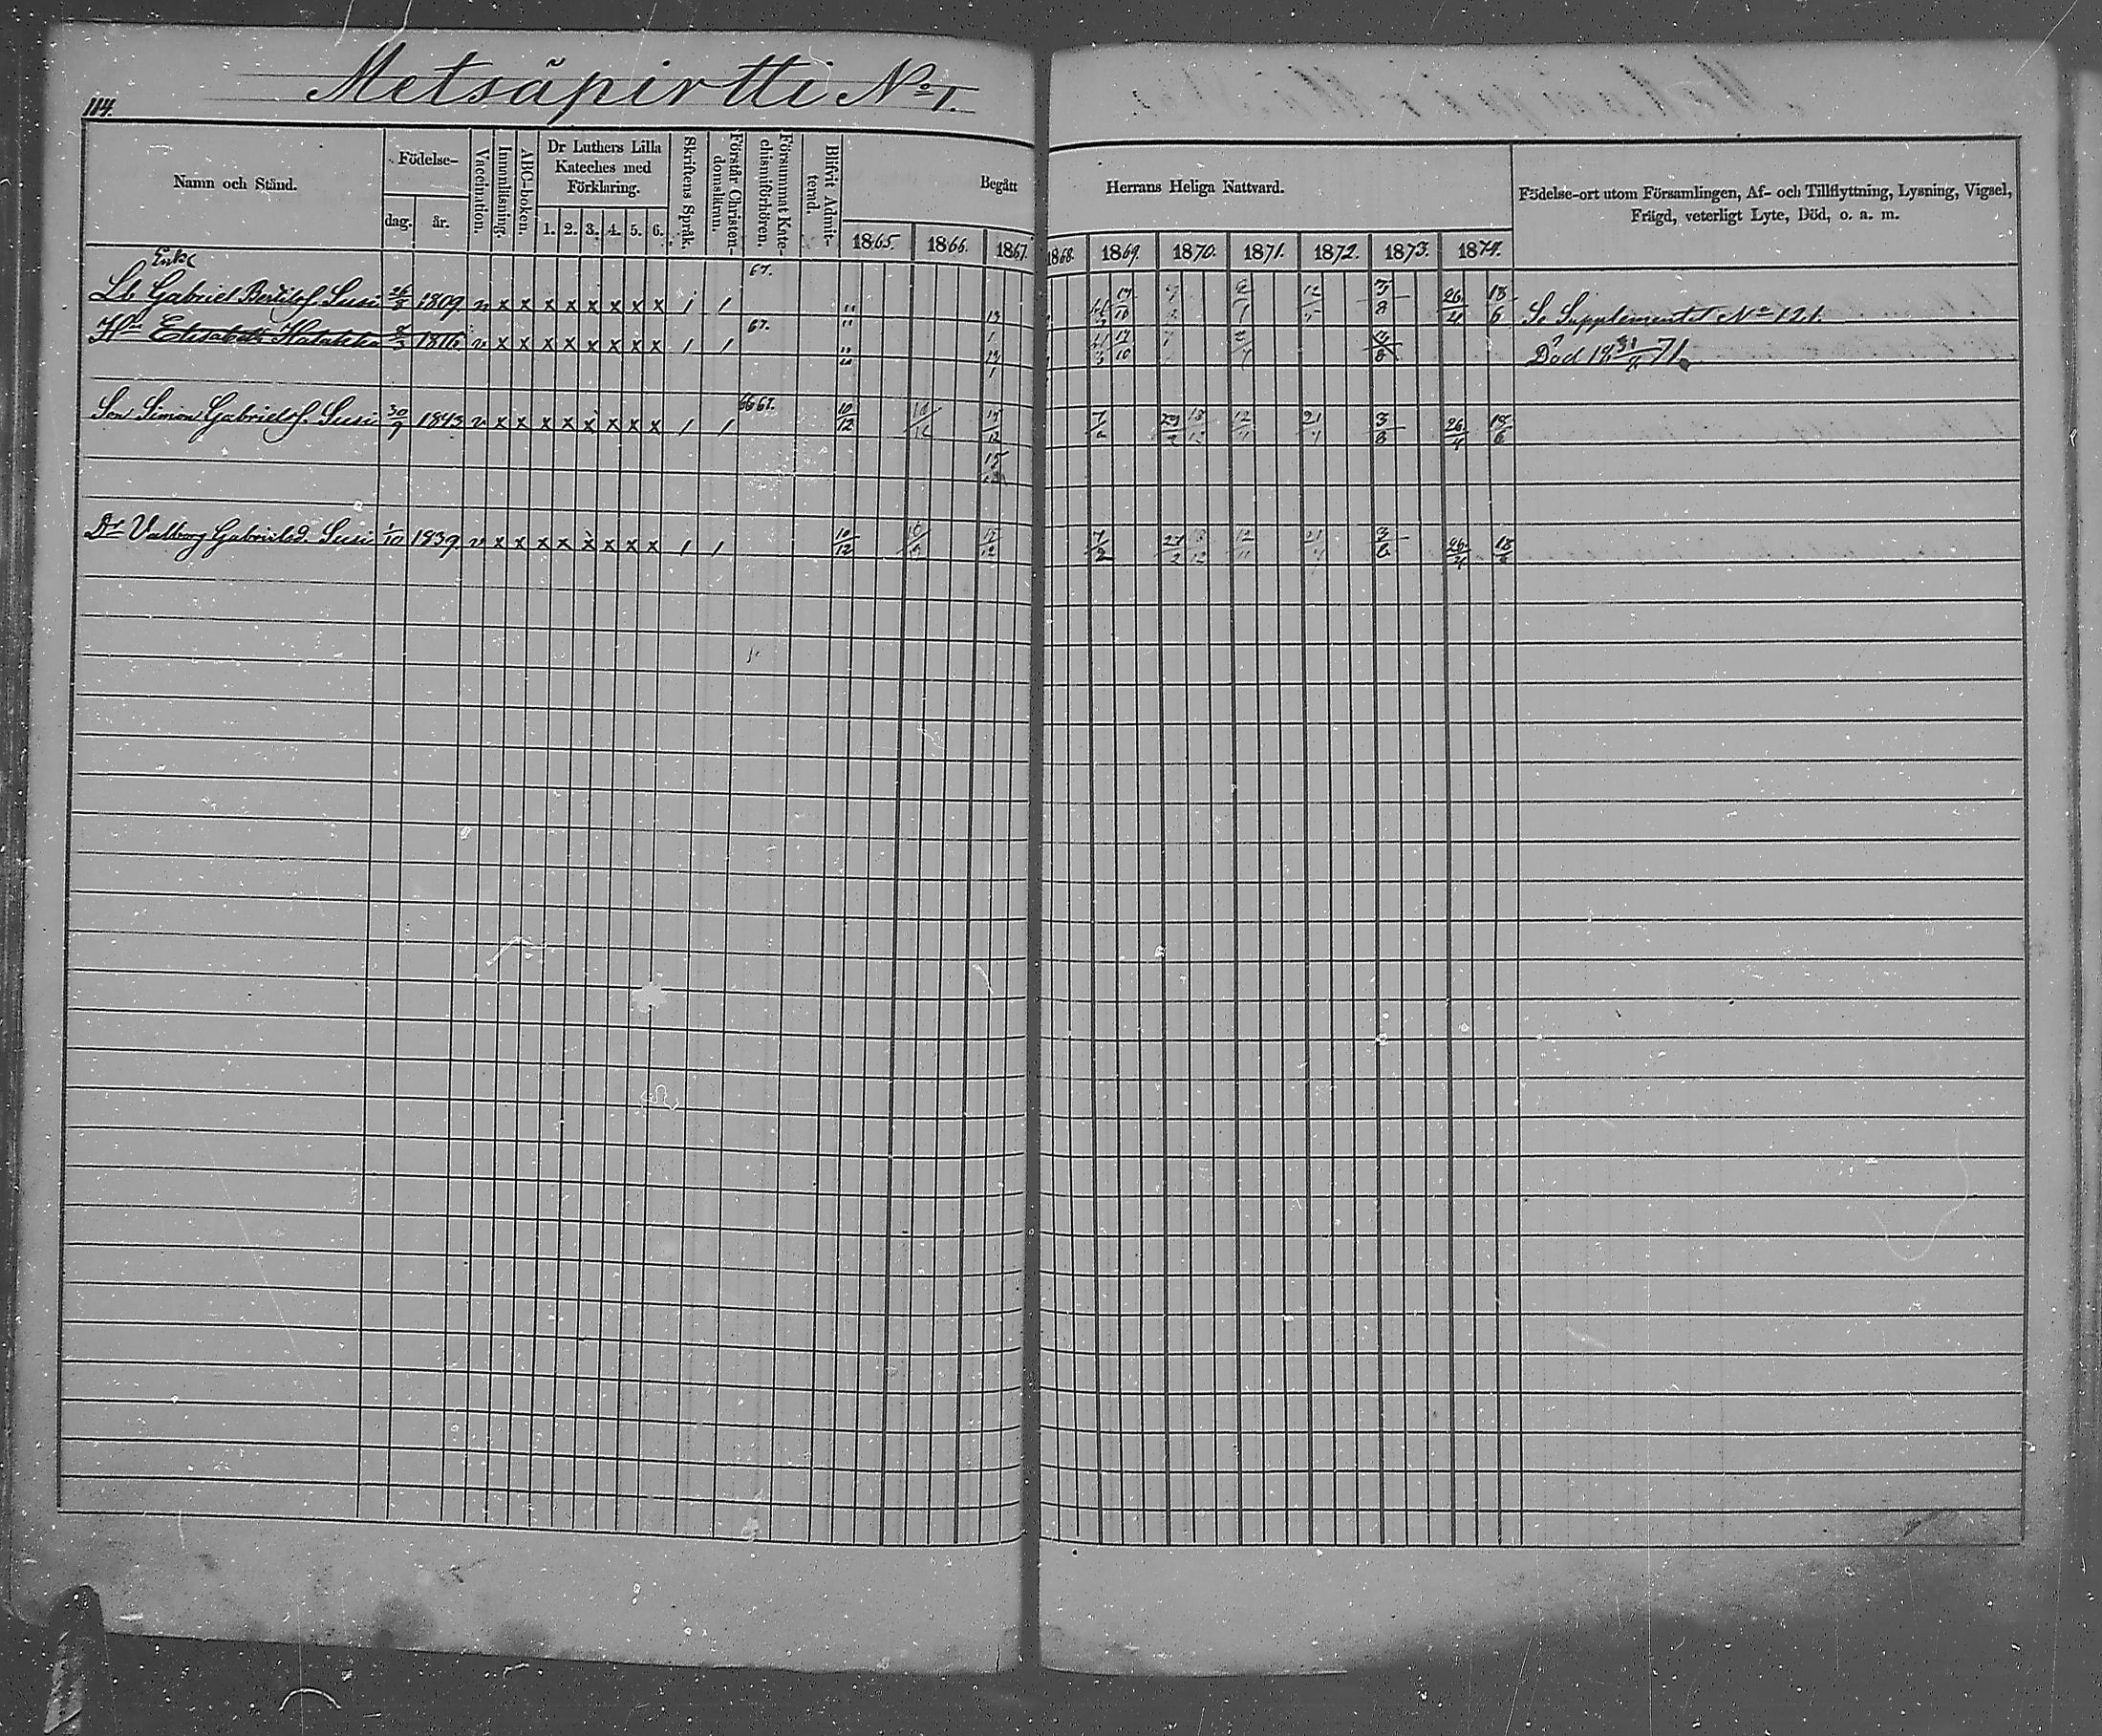 114.
Metsäpirtti No 1.
Namn och Stånd.
Födelse-
dag. år.
Vaccination.
Innanläsning.
ABC-boken.
Dr Luthers Lilla Kateches med Förklaring.
1. 2. 3. 4. 5. 6.
Skriftens Språk.
Förstår Christendomsläran.
Försummat Katechismiförhören.
Blifvit Admitterad.
Begått Herrans Heliga Nattvard.
1865. 1866. 1867. 1868. 1869. 1870. 1871. 1872. 1873. 1874.
Födelse-ort utom Församlingen, Af- och Tillflyttning, Lysning, Vigsel,
Frägd, veterligt Lyte, Död, o. a. m.
Enkl
Lb Gabriel Bertilsf. Susi 1809 v x x x x x x x x 1 1 67. 3/8 26/4 18/6 Se Supplementet No 121.
Hu Elisabeth Hatakka 1816 v x x x x x x x x 1 1 67. Död 18 31/ 71.
Son Simon Gabrielsf. Susi 30/9 1843 v x x x x x x x x 1 1 66 67. 10/12 15/12 21/ 3/8 26/4 18/6
15
Dr Valborg Gabrielsd. Susi 1/10 1839 v x x x x x x x x 1 1 10/12 15/12 7/2 3/8 26/4 18/6